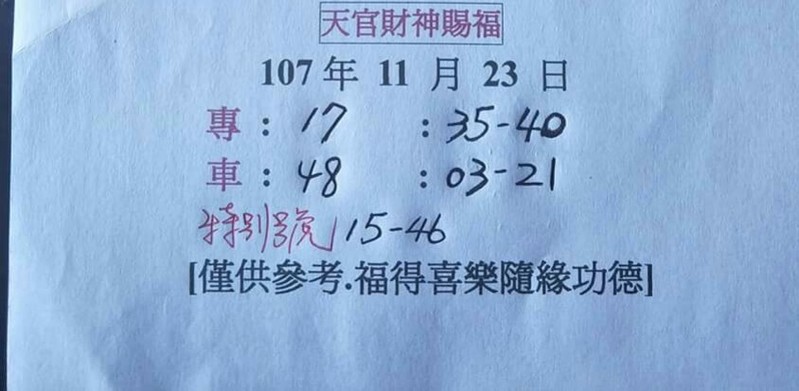 天官財神賜福
107年 11 月 23 日
專 : 17 : 35-40
車 : 48 : 03-21
特別號 15-46
[僅供參考.福得喜樂隨緣功德]